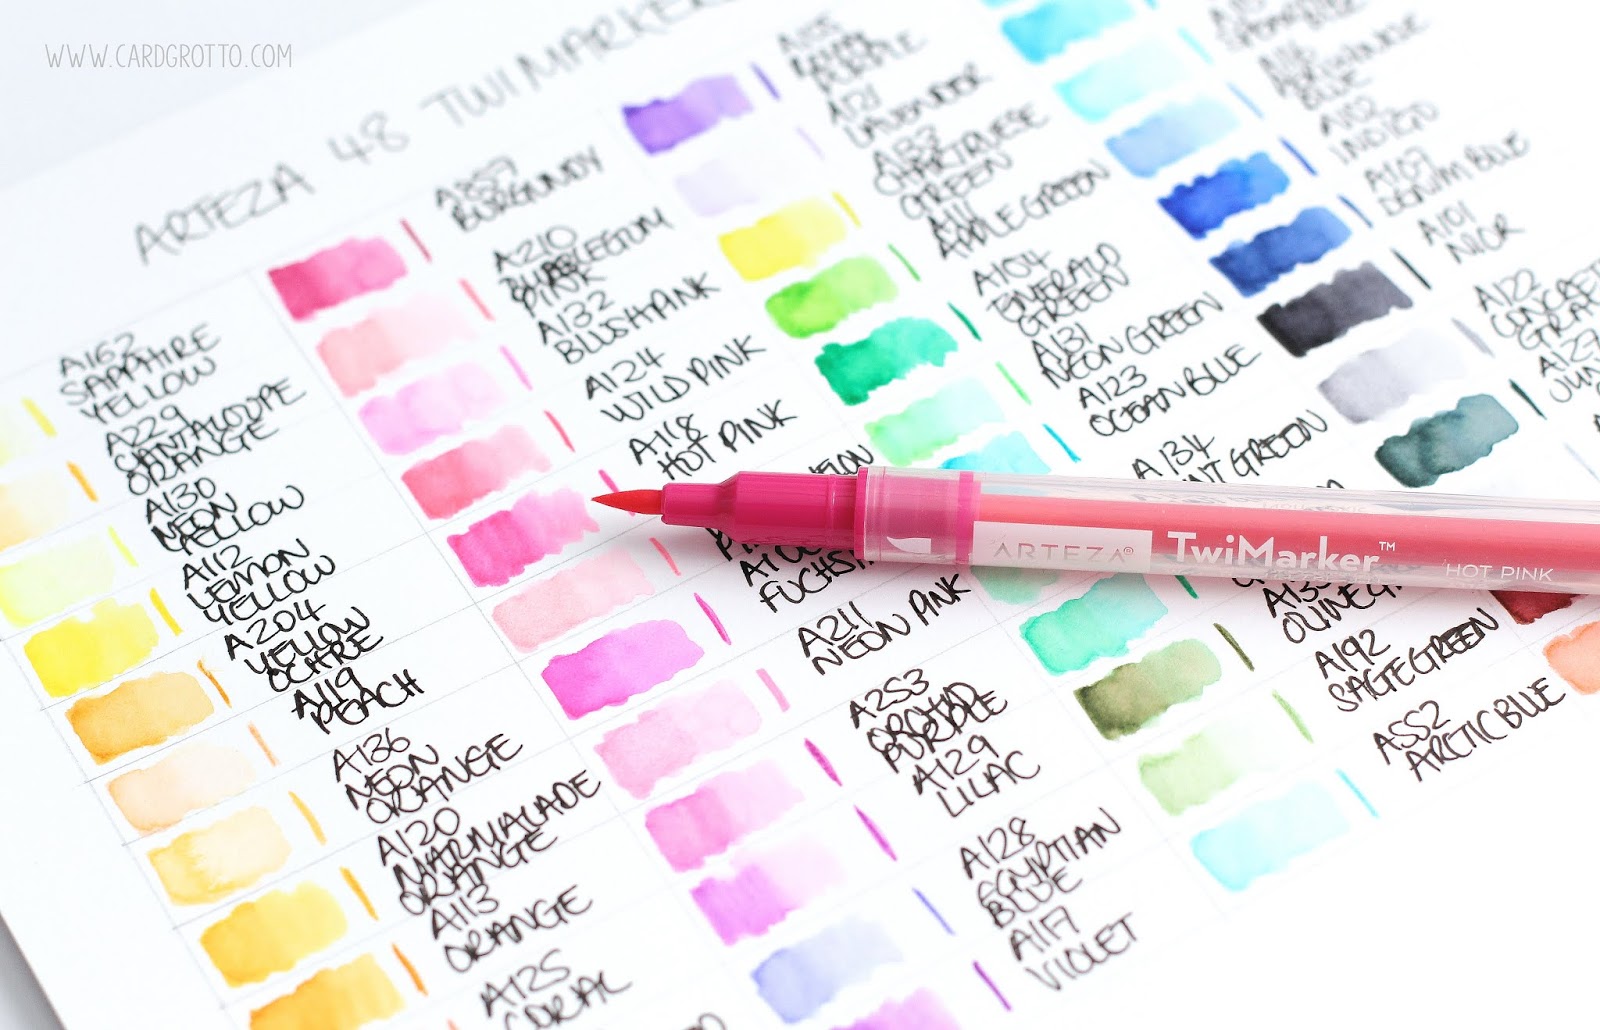 WWW.CARDGROTTO.COM
ARTEZA 48 TWIMARKER
A162
SAPPHIRE
YELLOW
A229
CANTALOUPE
ORANGE
A130
NEON
YELLOW
A112
LEMON
YELLOW
A204
YELLOW
OCHRE
A119
PEACH
A136
NEON
ORANGE
A120
MARMALADE
ORANGE
A113
ORANGE
A125
CORAL
BURGUNDY
A210
BUBBLEGUM
PINK
A132
BLUSH PINK
A124
WILD PINK
A118
HOT PINK
A211
NEON PINK
A253
ORCHID
PURPLE
A129
LILAC
A128
EGYPTIAN
BLUE
A117
VIOLET
PURPLE
A121
LAVENDER
CHARTRUESE
GREEN
A111
APPLE GREEN
A104
EMERALD
GREEN
A131
NEON GREEN
A123
OCEAN BLUE
A134
A192
SAGE GREEN
A552
ARCTIC BLUE
BLUE
A102
INDIGO
A107
DENIM BLUE
A101
NIOR
A122
A127
ARTEZA® TwiMarker™ HOT PINK